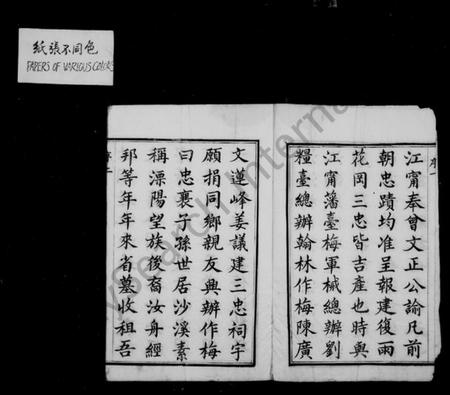 紙張不同色
PAPERS OF VARIOUS COLORS
序一
江甯奉曾文正公諭凡前
朝忠蹟均准呈報建復雨
花岡三忠皆吉產也時與
江甯藩臺梅軍械總辦劉
糧臺總辦翰林作梅陳廣
文蓮峰姜議建三忠祠宇
願捐同鄉親友興辦作梅
曰忠襄子孫世居沙溪素
稱溧陽望族後裔汝舟經
邦等年年來省墓收租吾
序二